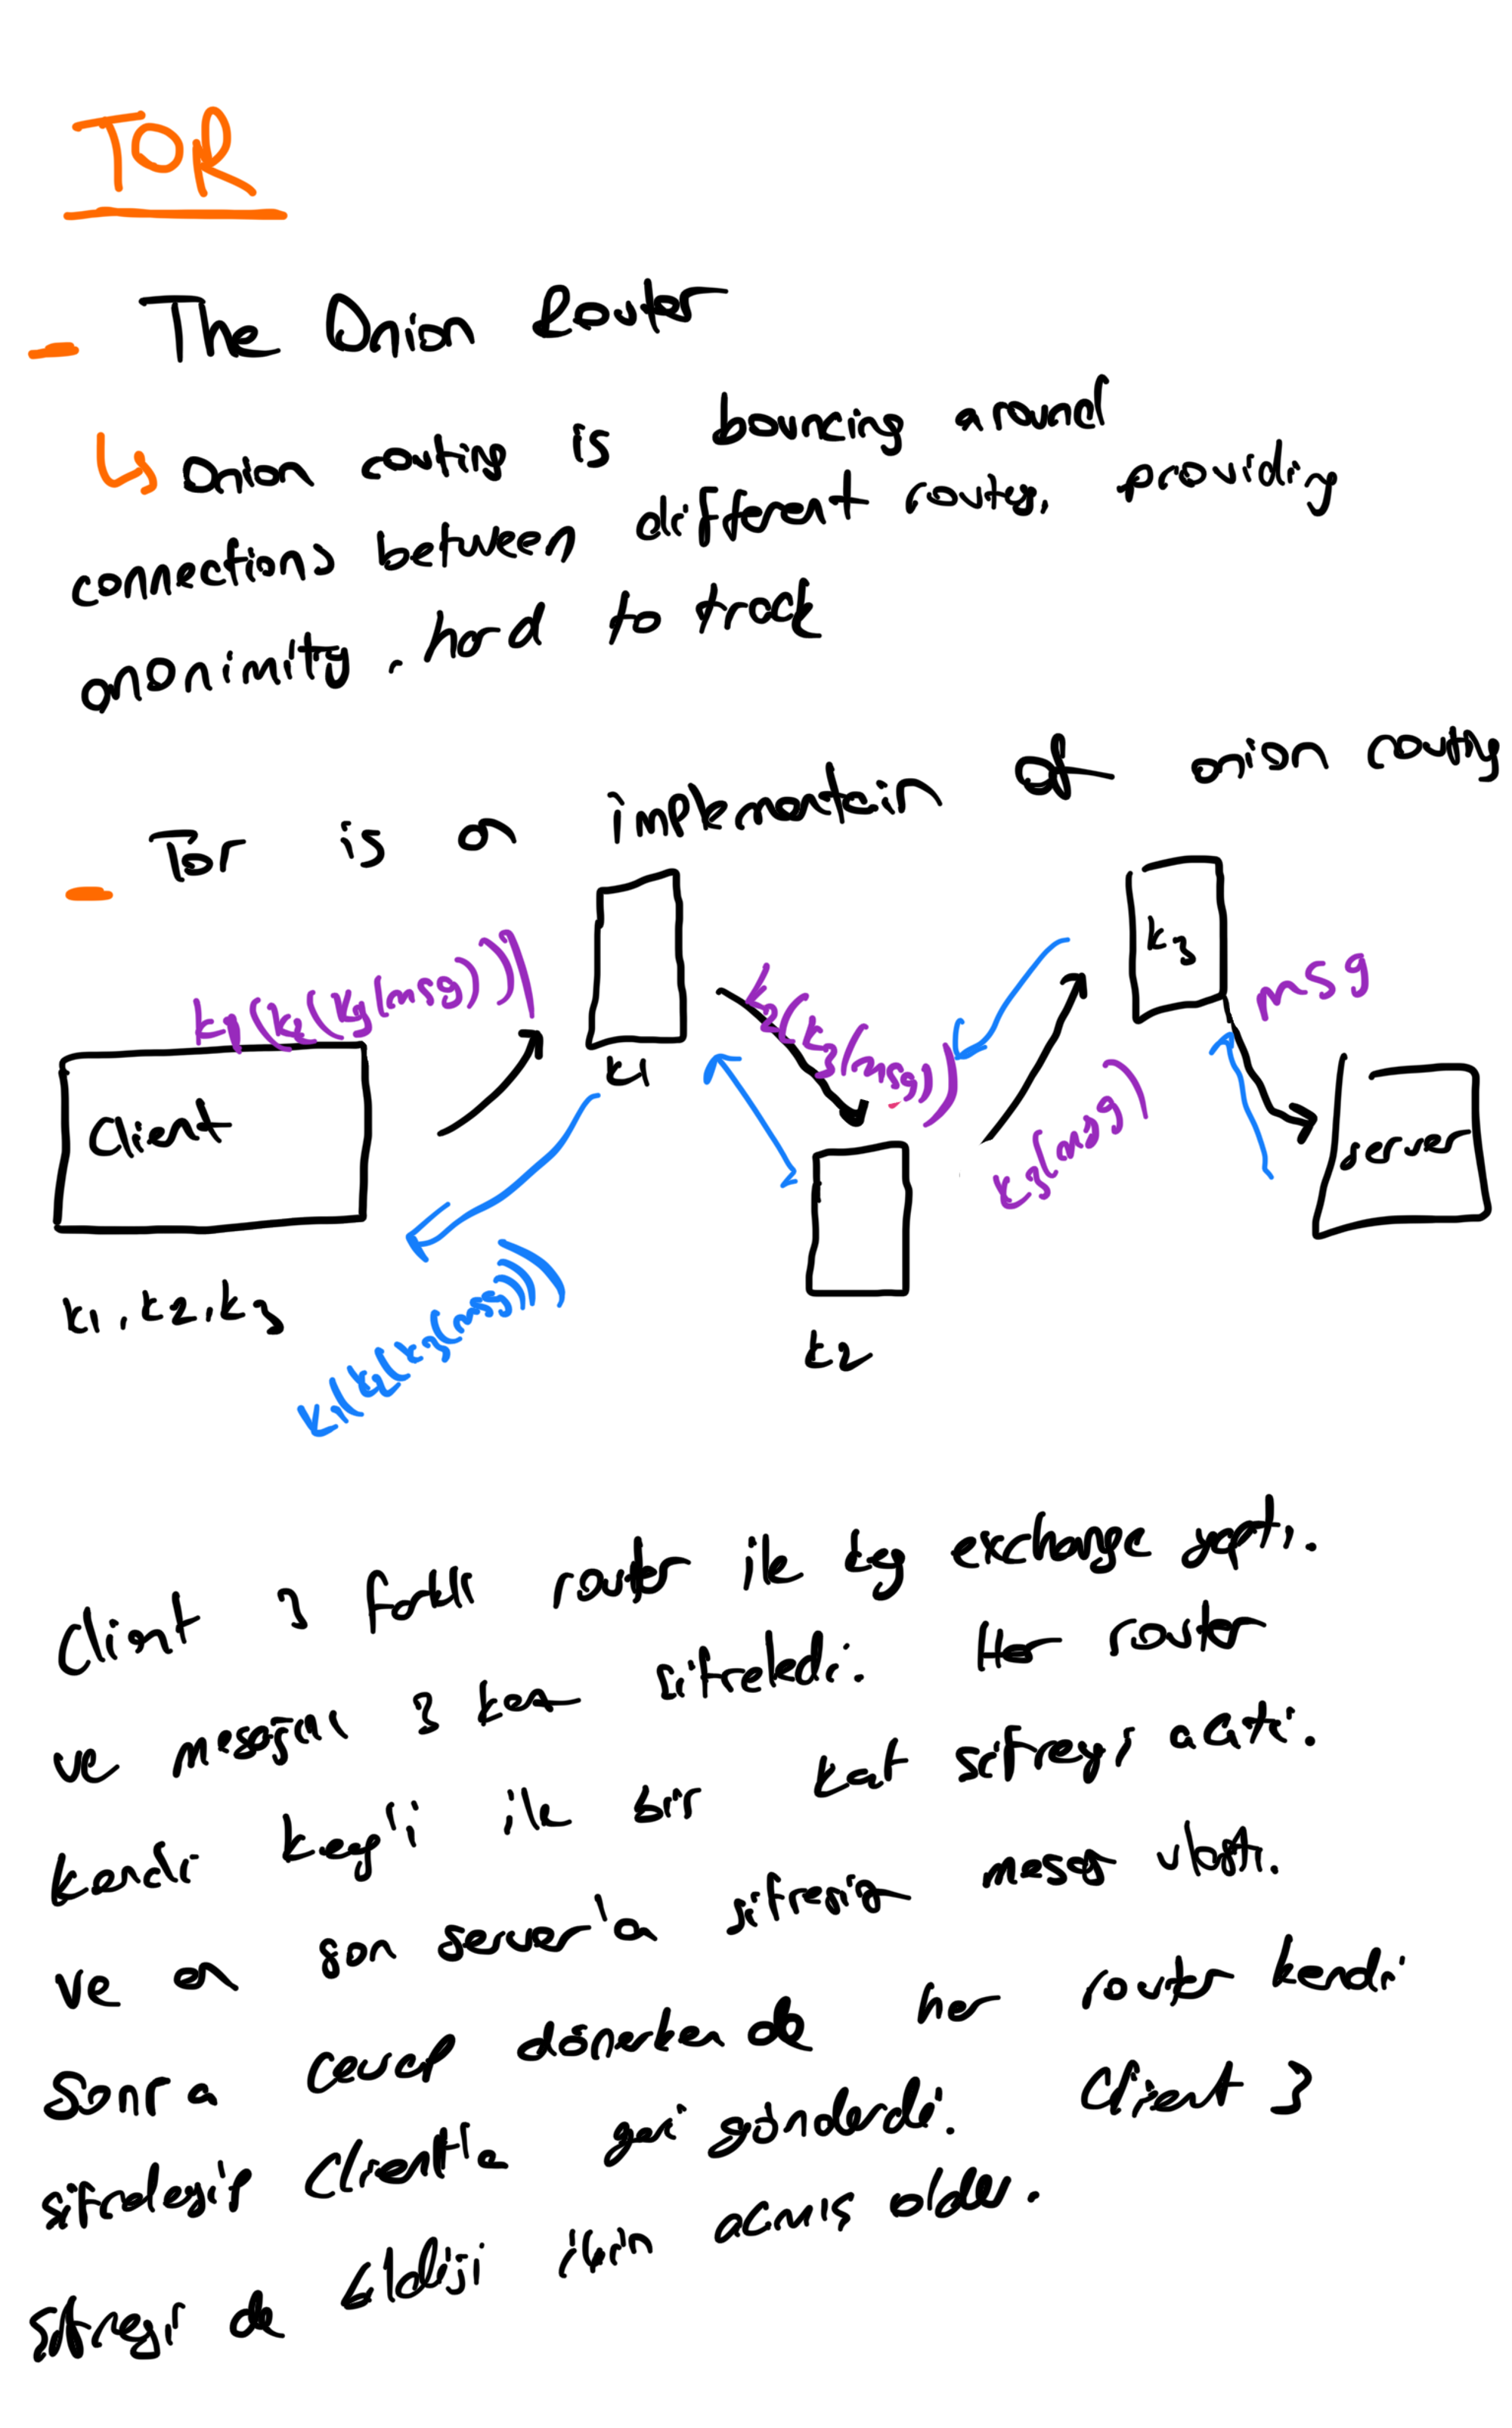 TOR
- The Onion Router
↳ Onion routing is bouncing around
connections between different routers, providing
anonimity. hard to track
- Tor is an implementation of onion routing
k1(k2(k3(msg)))
k2(k3(msg))
k3
msg
Client
k1
k3(msg)
server
k1, k2, k3
k1(k2(k3(msg)))
k2
Client 3 farklı router ile key exchange yaptı.
ve mesajını 3 kez sifreledi. Her router
kendi key'i ile bir kat sifreyi acatı.
ve en son server'a sifresiz mesaj ulaştı.
Sonra cevap dönerken de her router kendi
sifreleyip Client'a geri gönderdi. Client 3
sifreyi de bildiği için acmıs oldu.